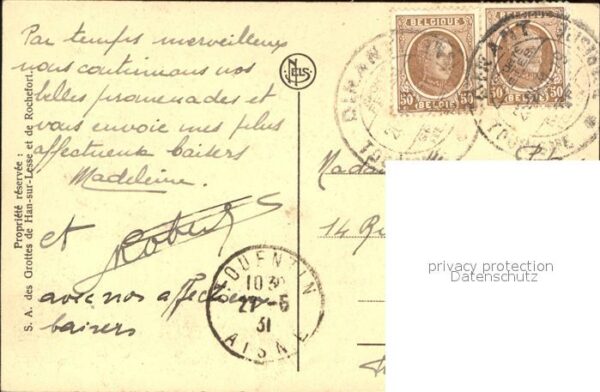 Par temps merveilleux
nous continuons nos
belles promenades et
vous envoie mes plus
affectueux baisers
Madeleine.
et Robert
avec nos affectueux
baisers
Propriété réservée :
S. A. des Grottes de Han-sur-Lesse et de Rochefort.
NELS
BELGIQUE
50c 50c
BELGIË
BELGIQUE
50c 50c
BELGIË
DINANT
DINANT
TOURISME
QUENTIN
1030
27-5
31
AISNE
Mada
14 Ru
privacy protection
Datenschutz